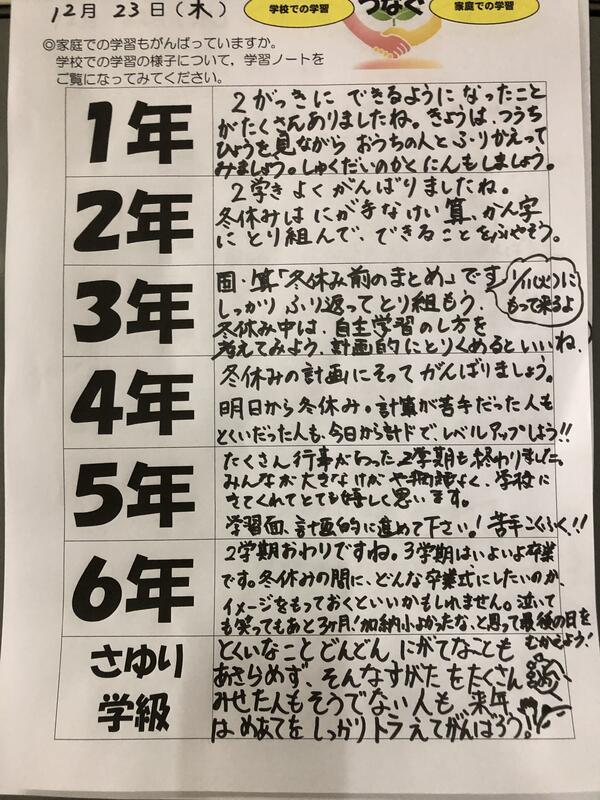 12月 23日(木)
学校での学習
つなぐ
家庭での学習
◎家庭での学習もがんばっていますか。
学校での学習の様子について,学習ノートを
ご覧になってみてください。
1年
2がっきに できるように なったこと
がたくさんありましたね。きょうは、つうち
ひょうを見ながら おうちの人と ふりかえって
みましょう。しゅくだいのかくにんもしましょう。
2年
2学き よくがんばりましたね。
冬休みは にが手なけい算、かん字
に とり組んで、できることをふやそう。
3年
国・算「冬休み前のまとめ」です
しっかり ふり返って とり組もう。
冬休み中は、自主学習のし方を
考えてみよう。計画的にとりくめるといいね。
1/11(火)に
もって来るよ
4年
冬休みの計画にそって がんばりましょう。
明日から冬休み。計算が苦手だった人も
とくいだった人も、今日から計ドで、レベルアップしよう!!
5年
たくさん行事があった2学期も終わりました。
みんなが大きなけがや なく、学校に
きてくれてとても嬉しく思います。
学習面、計画的に進めて下さい!苦手こくふく!!
6年
2学期おわりですね。3学期はいよいよ卒業
です。冬休みの間に、どんな卒業式にしたいのか、
イメージをもっておくといいかもしれません。泣いて
も笑ってもあと3ヶ月!加納小よかったな、と思って最後の日を
むかえよう!
さゆり
学級
とくいなこと どんどん にがてなことも
あきらめず、そんなすがた をたくさん
みせた人もそうでない人も、来年
は めあてを しっかりトラえてがんばろう!!